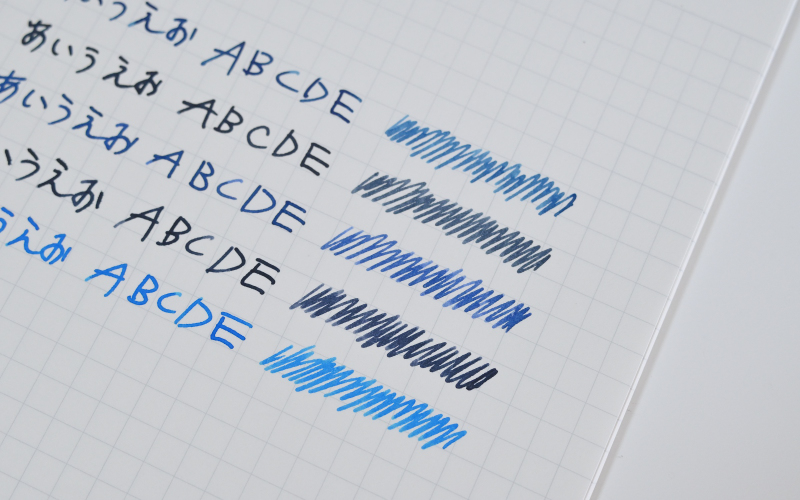 いうえお ABCDE
あいうえお ABCDE
あいうえお ABCDE
いうえお ABCDE
うえお ABCDE